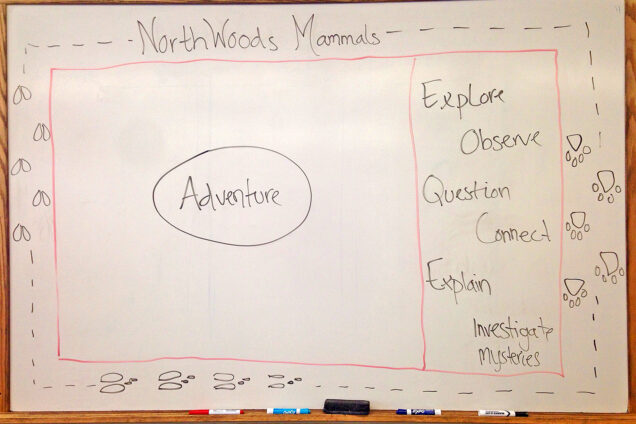 NorthWoods Mammals
Adventure
Explore
Observe
Question
Connect
Explain
Investigate
Mysteries